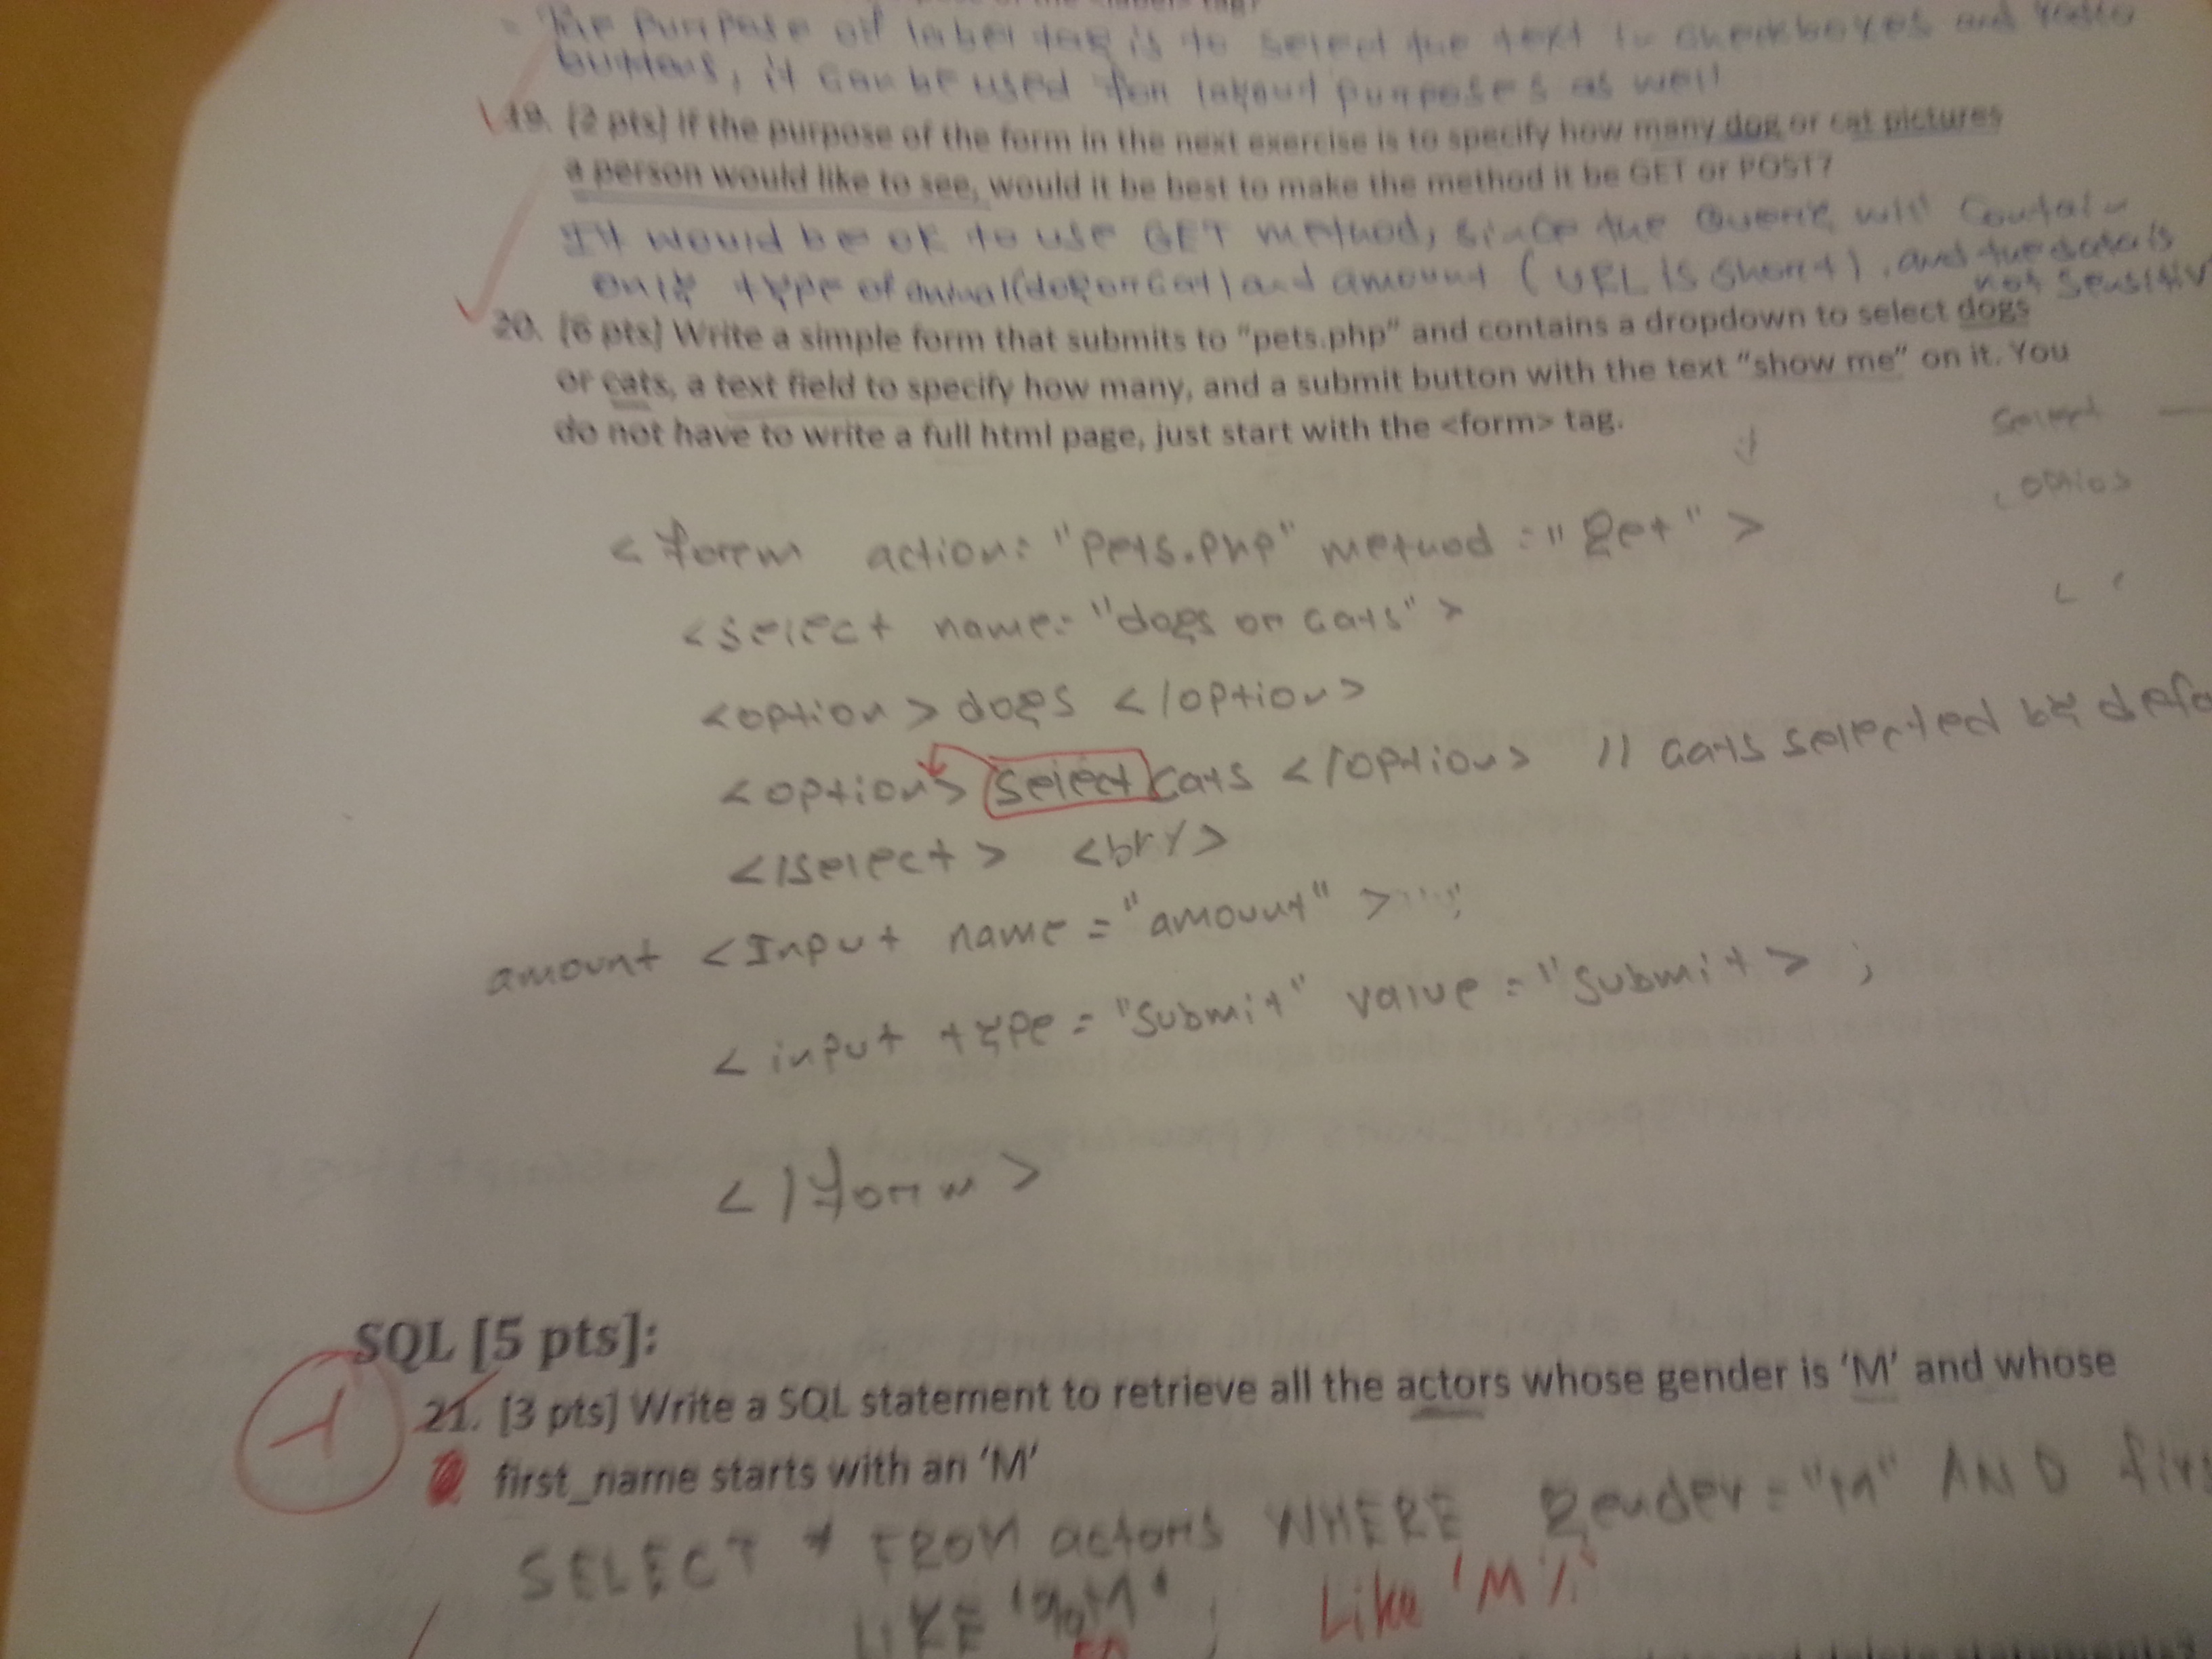 The purpose of label tag is to select the text in checkboxes and radio
buttons, it can be used for layout purposes as well
19. [2 pts] If the purpose of the form in the next exercise is to specify how many dog or cat pictures
a person would like to see, would it be best to make the method it be GET or POST?
It would be ok to use GET method, since the will contain
only type of animal(dog or cat) and amount (URL is short), and the data is
not sensitiv
20. [6 pts] Write a simple form that submits to "pets.php" and contains a dropdown to select dogs
or cats, a text field to specify how many, and a submit button with the text "show me" on it. You
do not have to write a full html page, just start with the <form> tag.
Select
option
<form action="pets.php" method="get">
<select name="dogs or cats">
<option> dogs </option>
<option> select cats </option> // cats selected by defa
</select> <br/>
amount <Input name="amount">
<input type="submit" value="submit> ;
</form>
SQL [5 pts]:
-1
21. [3 pts] Write a SQL statement to retrieve all the actors whose gender is 'M' and whose
first_name starts with an 'M'
SELECT * FROM actors WHERE gender="M" AND firs
LIKE '%M' ; Like 'M%'